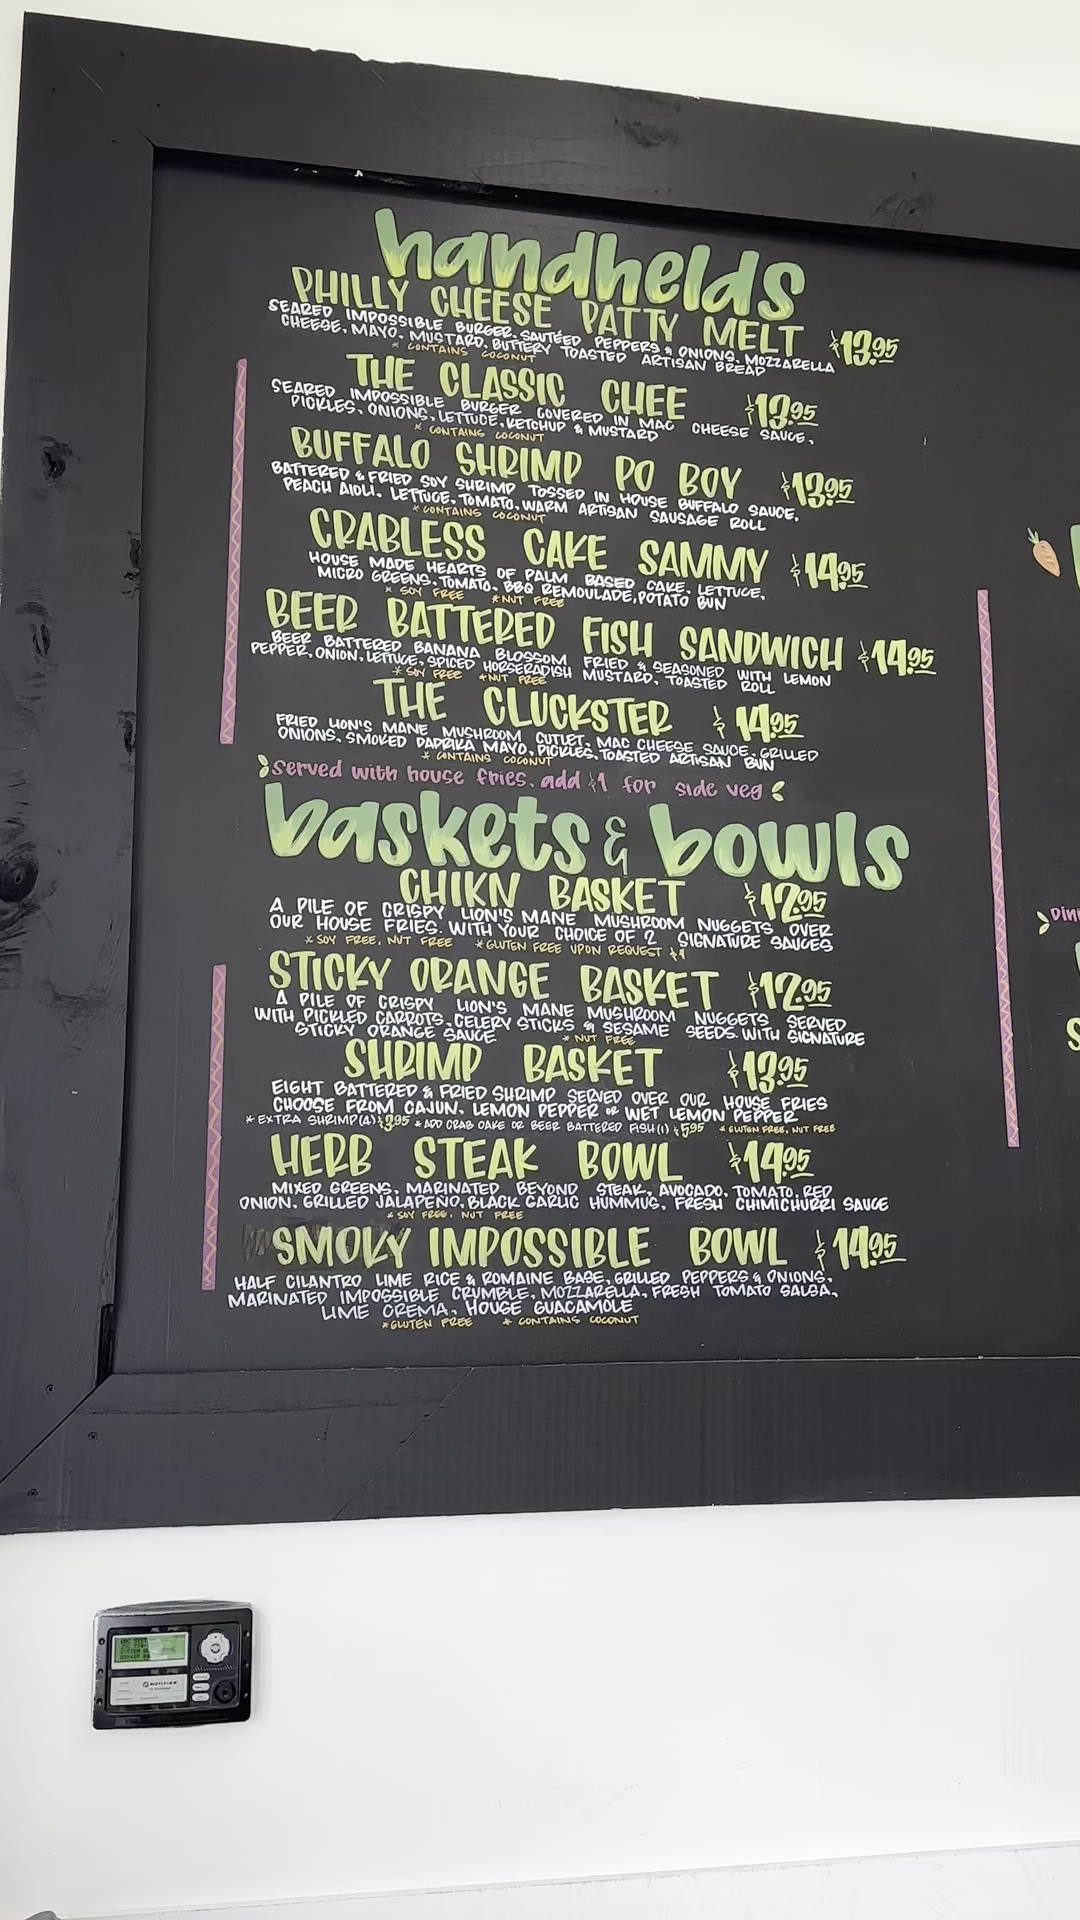 handhelds
PHILLY CHEESE PATTY MELT $13.95
SEARED IMPOSSIBLE BURGER, SAUTÉED PEPPERS & ONIONS, MOZZARELLA
CHEESE, MAYO, MUSTARD, BUTTERY TOASTED ARTISAN BREAD
* CONTAINS COCONUT
THE CLASSIC CHEE $13.95
SEARED IMPOSSIBLE BURGER COVERED IN MAC CHEESE SAUCE,
PICKLES, ONIONS, LETTUCE, KETCHUP & MUSTARD
* CONTAINS COCONUT
BUFFALO SHRIMP PO BOY $13.95
BATTERED & FRIED SOY SHRIMP TOSSED IN HOUSE BUFFALO SAUCE,
PEACH AIOLI, LETTUCE, TOMATO, WARM ARTISAN SAUSAGE ROLL
* CONTAINS COCONUT
CRABLESS CAKE SAMMY $14.95
HOUSE MADE HEARTS OF PALM BASED CAKE, LETTUCE,
MICRO GREENS, TOMATO, BBQ REMOULADE, POTATO BUN
* SOY FREE * NUT FREE
BEER BATTERED FISH SANDWICH $14.95
BEER BATTERED BANANA BLOSSOM FRIED & SEASONED WITH LEMON
PEPPER, ONION, LETTUCE, SPICED HORSERADISH MUSTARD, TOASTED ROLL
* SOY FREE * NUT FREE
THE CLUCKSTER $14.95
FRIED LION'S MANE MUSHROOM CUTLET, MAC CHEESE SAUCE, GRILLED
ONIONS, SMOKED PAPRIKA MAYO, PICKLES, TOASTED ARTISAN BUN
* CONTAINS COCONUT
served with house fries, add $1 for side veg
baskets & bowls
CHIKN BASKET $12.95
A PILE OF CRISPY LION'S MANE MUSHROOM NUGGETS OVER
OUR HOUSE FRIES. WITH YOUR CHOICE OF 2 SIGNATURE SAUCES
* SOY FREE, NUT FREE * GLUTEN FREE UPON REQUEST $1
STICKY ORANGE BASKET $12.95
A PILE OF CRISPY LION'S MANE MUSHROOM NUGGETS SERVED
WITH PICKLED CARROTS, CELERY STICKS & SESAME SEEDS. WITH SIGNATURE
STICKY ORANGE SAUCE * NUT FREE
SHRIMP BASKET $13.95
EIGHT BATTERED & FRIED SHRIMP SERVED OVER OUR HOUSE FRIES
CHOOSE FROM CAJUN, LEMON PEPPER or WET LEMON PEPPER
* EXTRA SHRIMP(4) $3.95 * ADD CRAB CAKE OR BEER BATTERED FISH(1) $5.95 * GLUTEN FREE, NUT FREE
HERB STEAK BOWL $14.95
MIXED GREENS, MARINATED BEYOND STEAK, AVOCADO, TOMATO, RED
ONION, GRILLED JALAPEÑO, BLACK GARLIC HUMMUS, FRESH CHIMICHURRI SAUCE
* SOY FREE, NUT FREE
SMOKY IMPOSSIBLE BOWL $14.95
HALF CILANTRO LIME RICE & ROMAINE BASE, GRILLED PEPPERS & ONIONS,
MARINATED IMPOSSIBLE CRUMBLE, MOZZARELLA, FRESH TOMATO SALSA,
LIME CREMA, HOUSE GUACAMOLE
* GLUTEN FREE * CONTAINS COCONUT
NOTIFIER